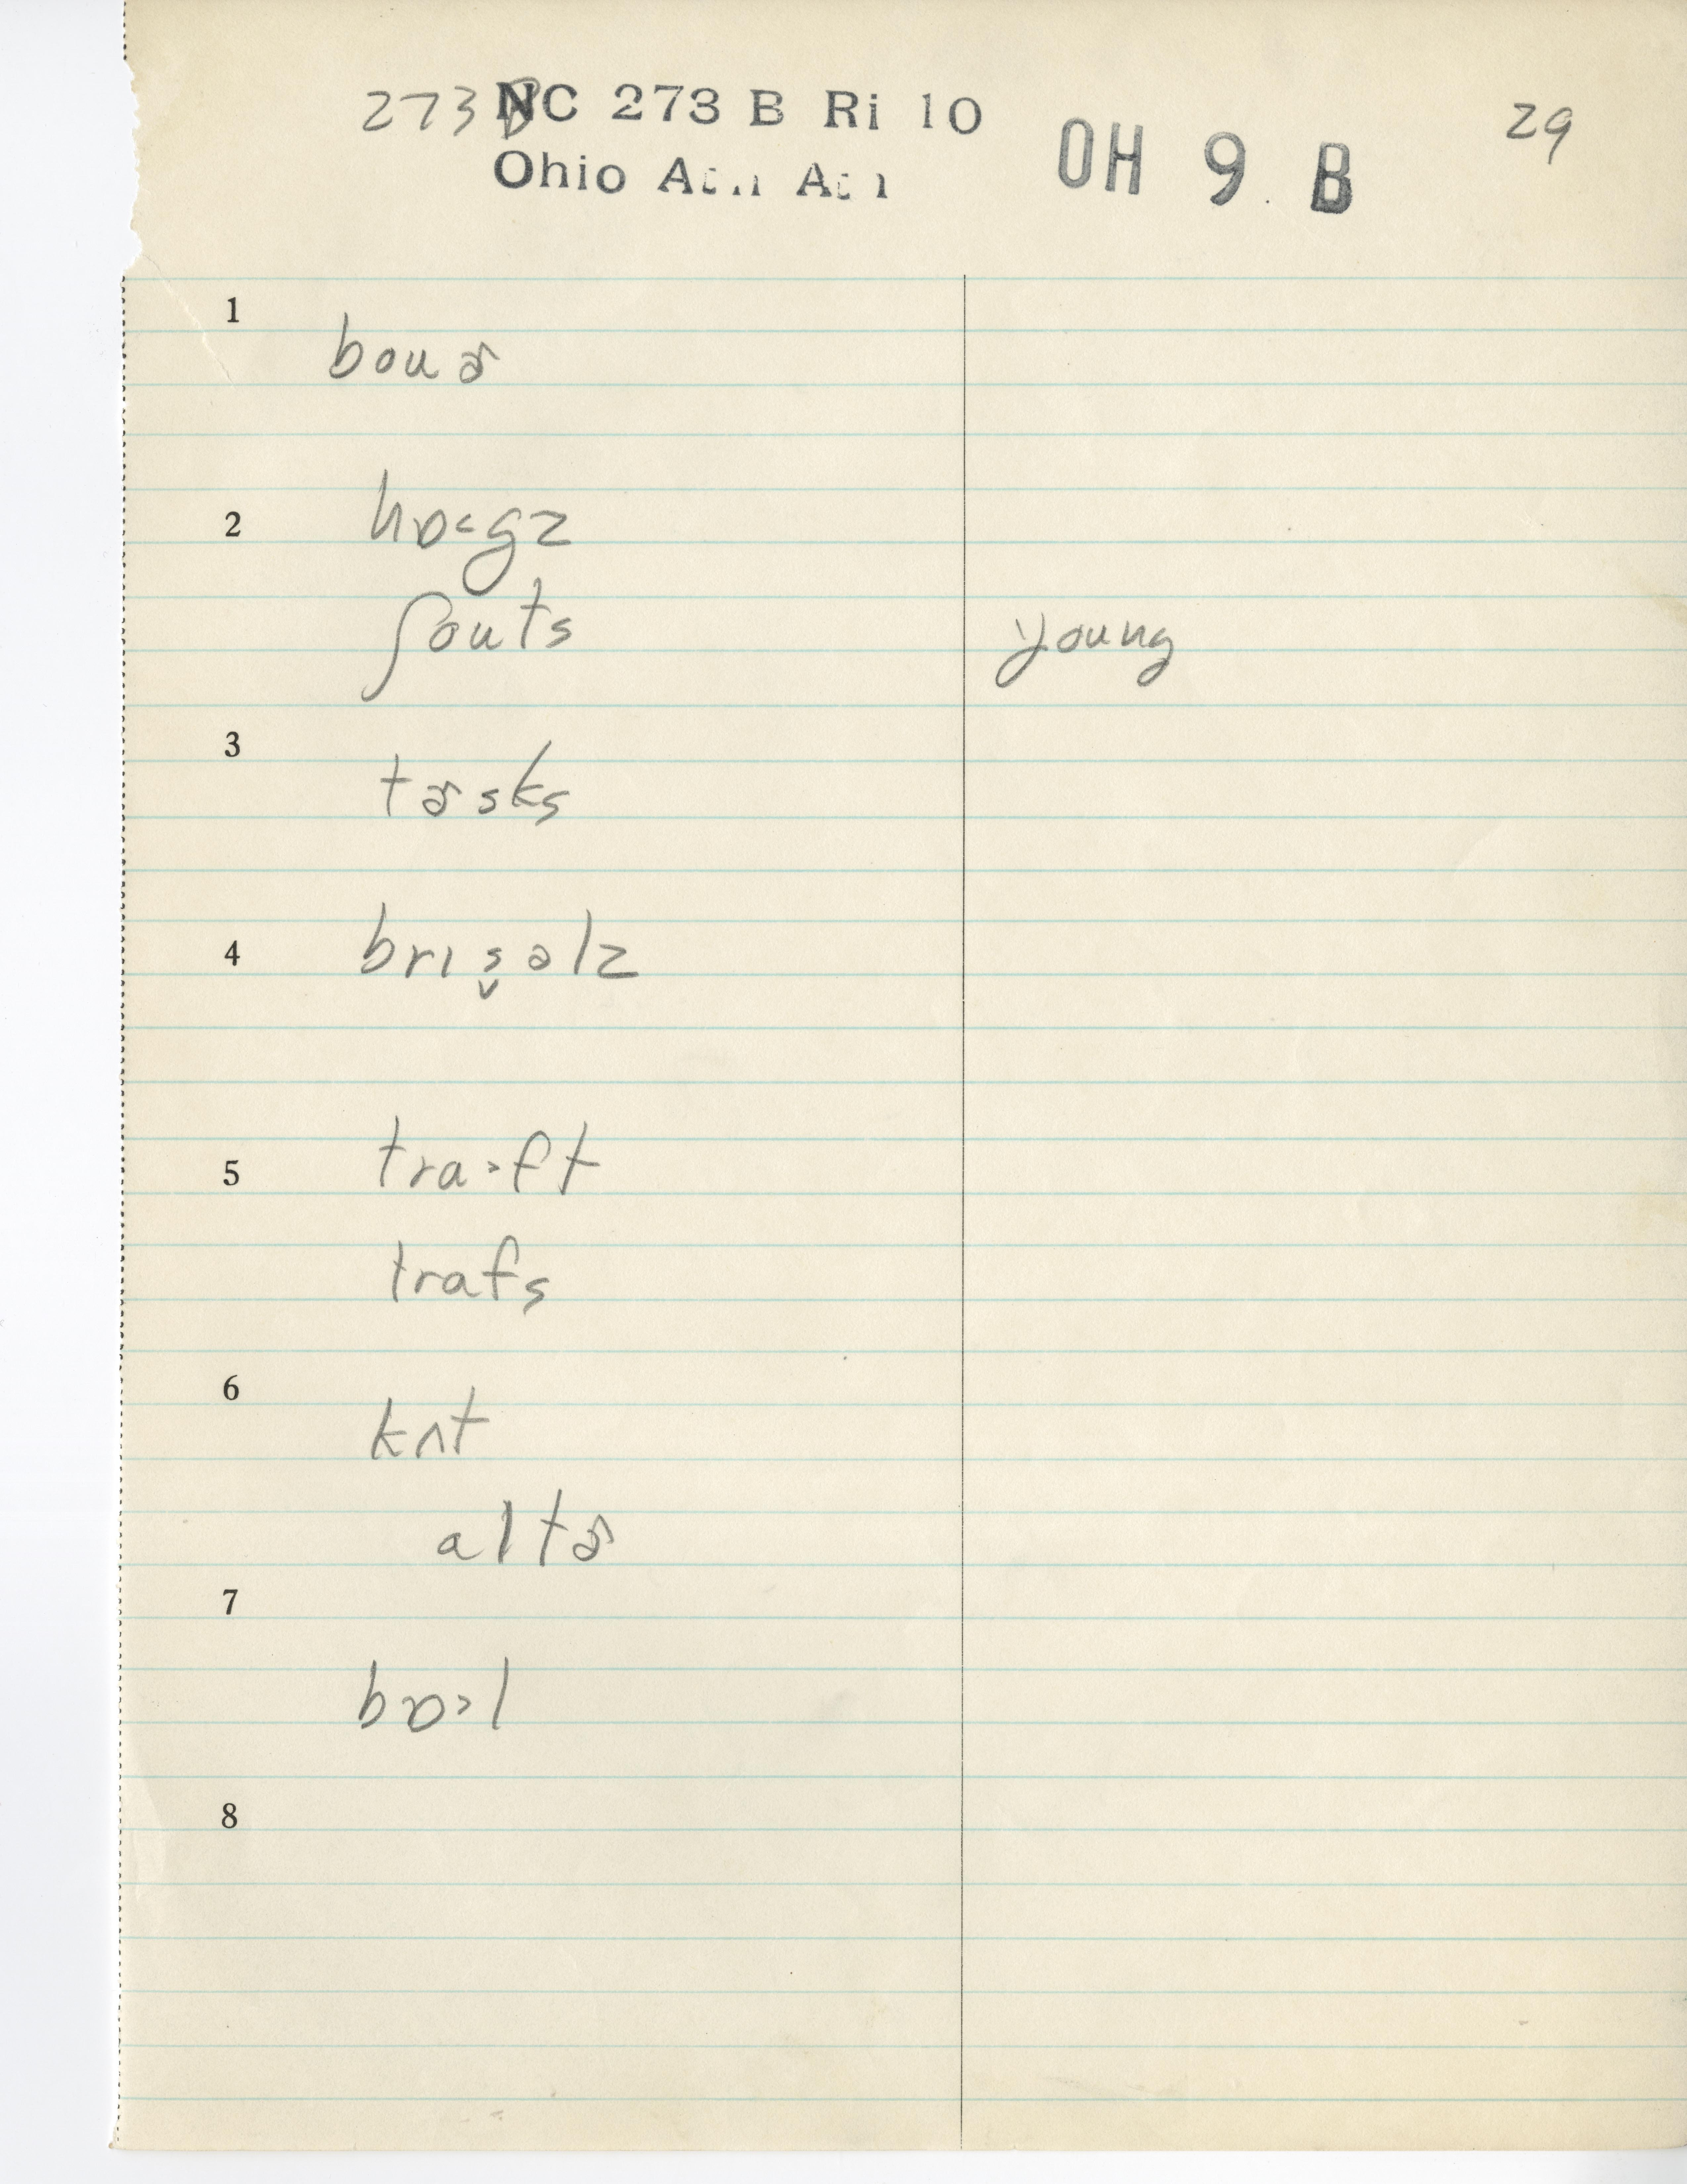 273B NC 273 B Ri 10
Ohio
OH 9 B
29
1
bouɚ
2
hɒ˂gz
ʃouts
young
3
tɚsks
4
brɪs̬əlz
5
tra˃ft
trafs
6
kʌt
altɚ
7
bɒ˃l
8